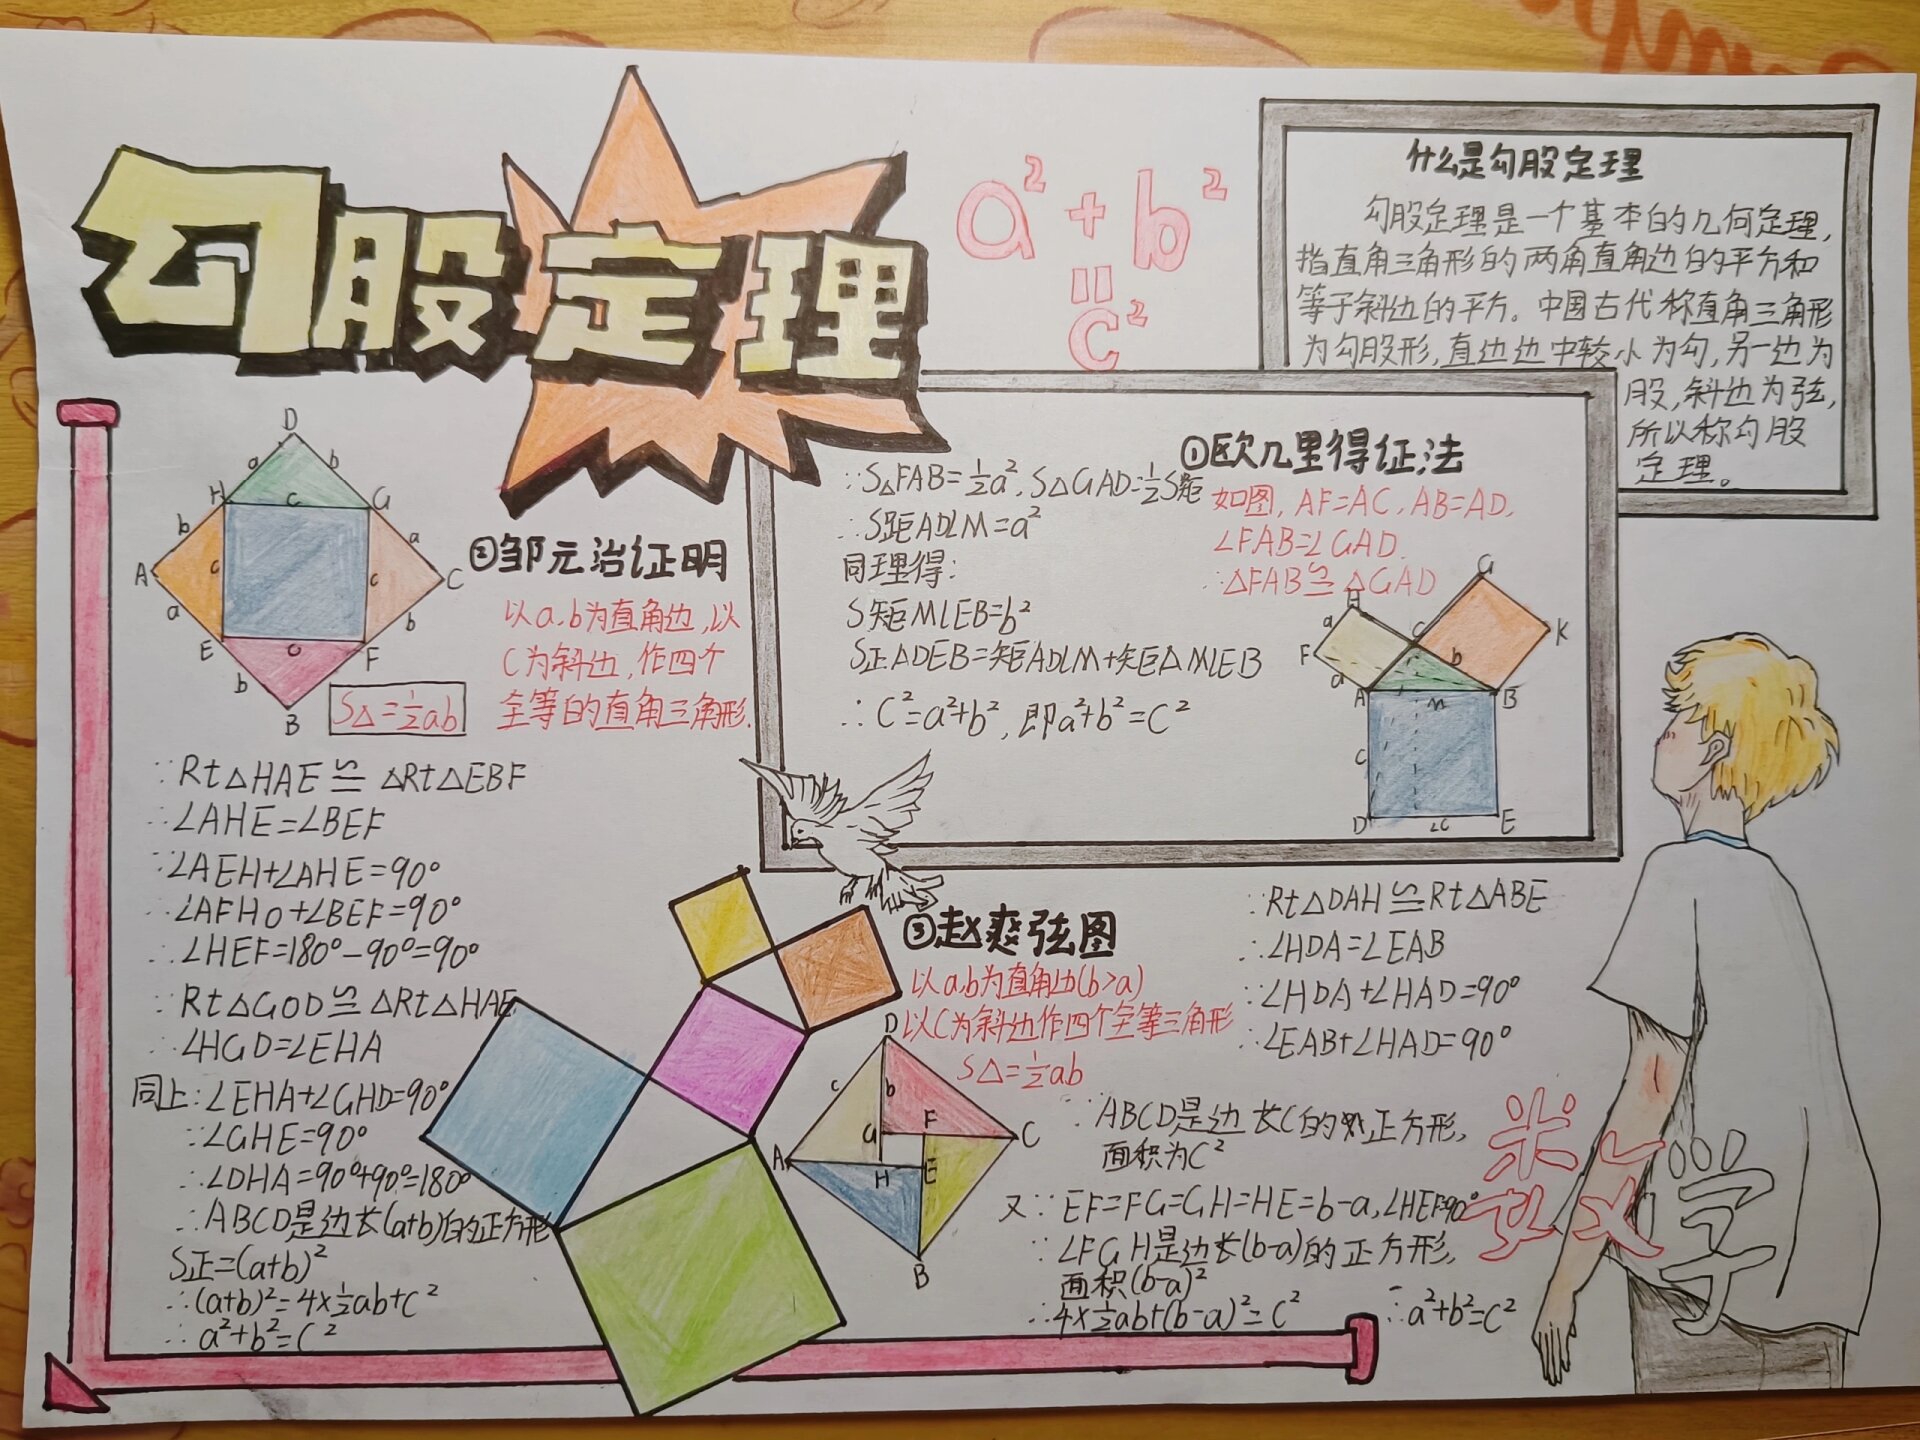 勾股定理
a²+b²
=
c²
什么是勾股定理
勾股定理是一个基本的几何定理,
指直角三角形的两角直角边的平方和
等于斜边的平方。中国古代称直角三角形
为勾股形,直边边中较小为勾,另一边为
股,斜边为弦,
所以称勾股
定理。
①欧几里得证法
如图, AF=AC, AB=AD,
∠FAB=∠GAD.
∴△FAB≌△GAD
∵S△FAB=½a², S△GAD=½S矩
∴S距ADLM=a²
同理得:
S矩MLEB=b²
S正ADEB=矩ADLM+矩△MLEB
∴C²=a²+b², 即a²+b²=C²
H
G
a
C
K
F
b
a
A
M
B
C
D
∠C
E
D
a
b
H
c
G
b
a
A
c
c
C
a
b
E
c
F
b
B
S△=½ab
②邹元治证明
以a,b为直角边,以
C为斜边,作四个
全等的直角三角形.
∵Rt△HAE≌△Rt△EBF
∴∠AHE=∠BEF
∵∠AEH+∠AHE=90°
∴∠AFHO+∠BEF=90°
∴∠HEF=180°-90°=90°
∵Rt△GOD≌△Rt△HAE
∴∠HGD=∠EHA
同上:∠EHA+∠GHD=90°
∵∠GHE=90°
∴∠DHA=90°+90°=180°
∴ABCD是边长(a+b)的正方形
S正=(a+b)²
∴(a+b)²=4×½ab+c²
∴a²+b²=C²
③赵爽弦图
以a,b为直角边(b>a)
以C为斜边作四个全等三角形
S△=½ab
D
c
b
G
F
C
A
H
E
B
∵Rt△DAH≌Rt△ABE
∴∠HDA=∠EAB
∵∠HDA+∠HAD=90°
∴∠EAB+∠HAD=90°
∵ABCD是边长C的正方形,
面积为C²
又∵EF=FG=GH=HE=b-a,∠HEF=90°
∵∠FGH是边长(b-a)的正方形,
面积(b-a)²
∴4×½ab+(b-a)²=C²
∴a²+b²=C²
数学